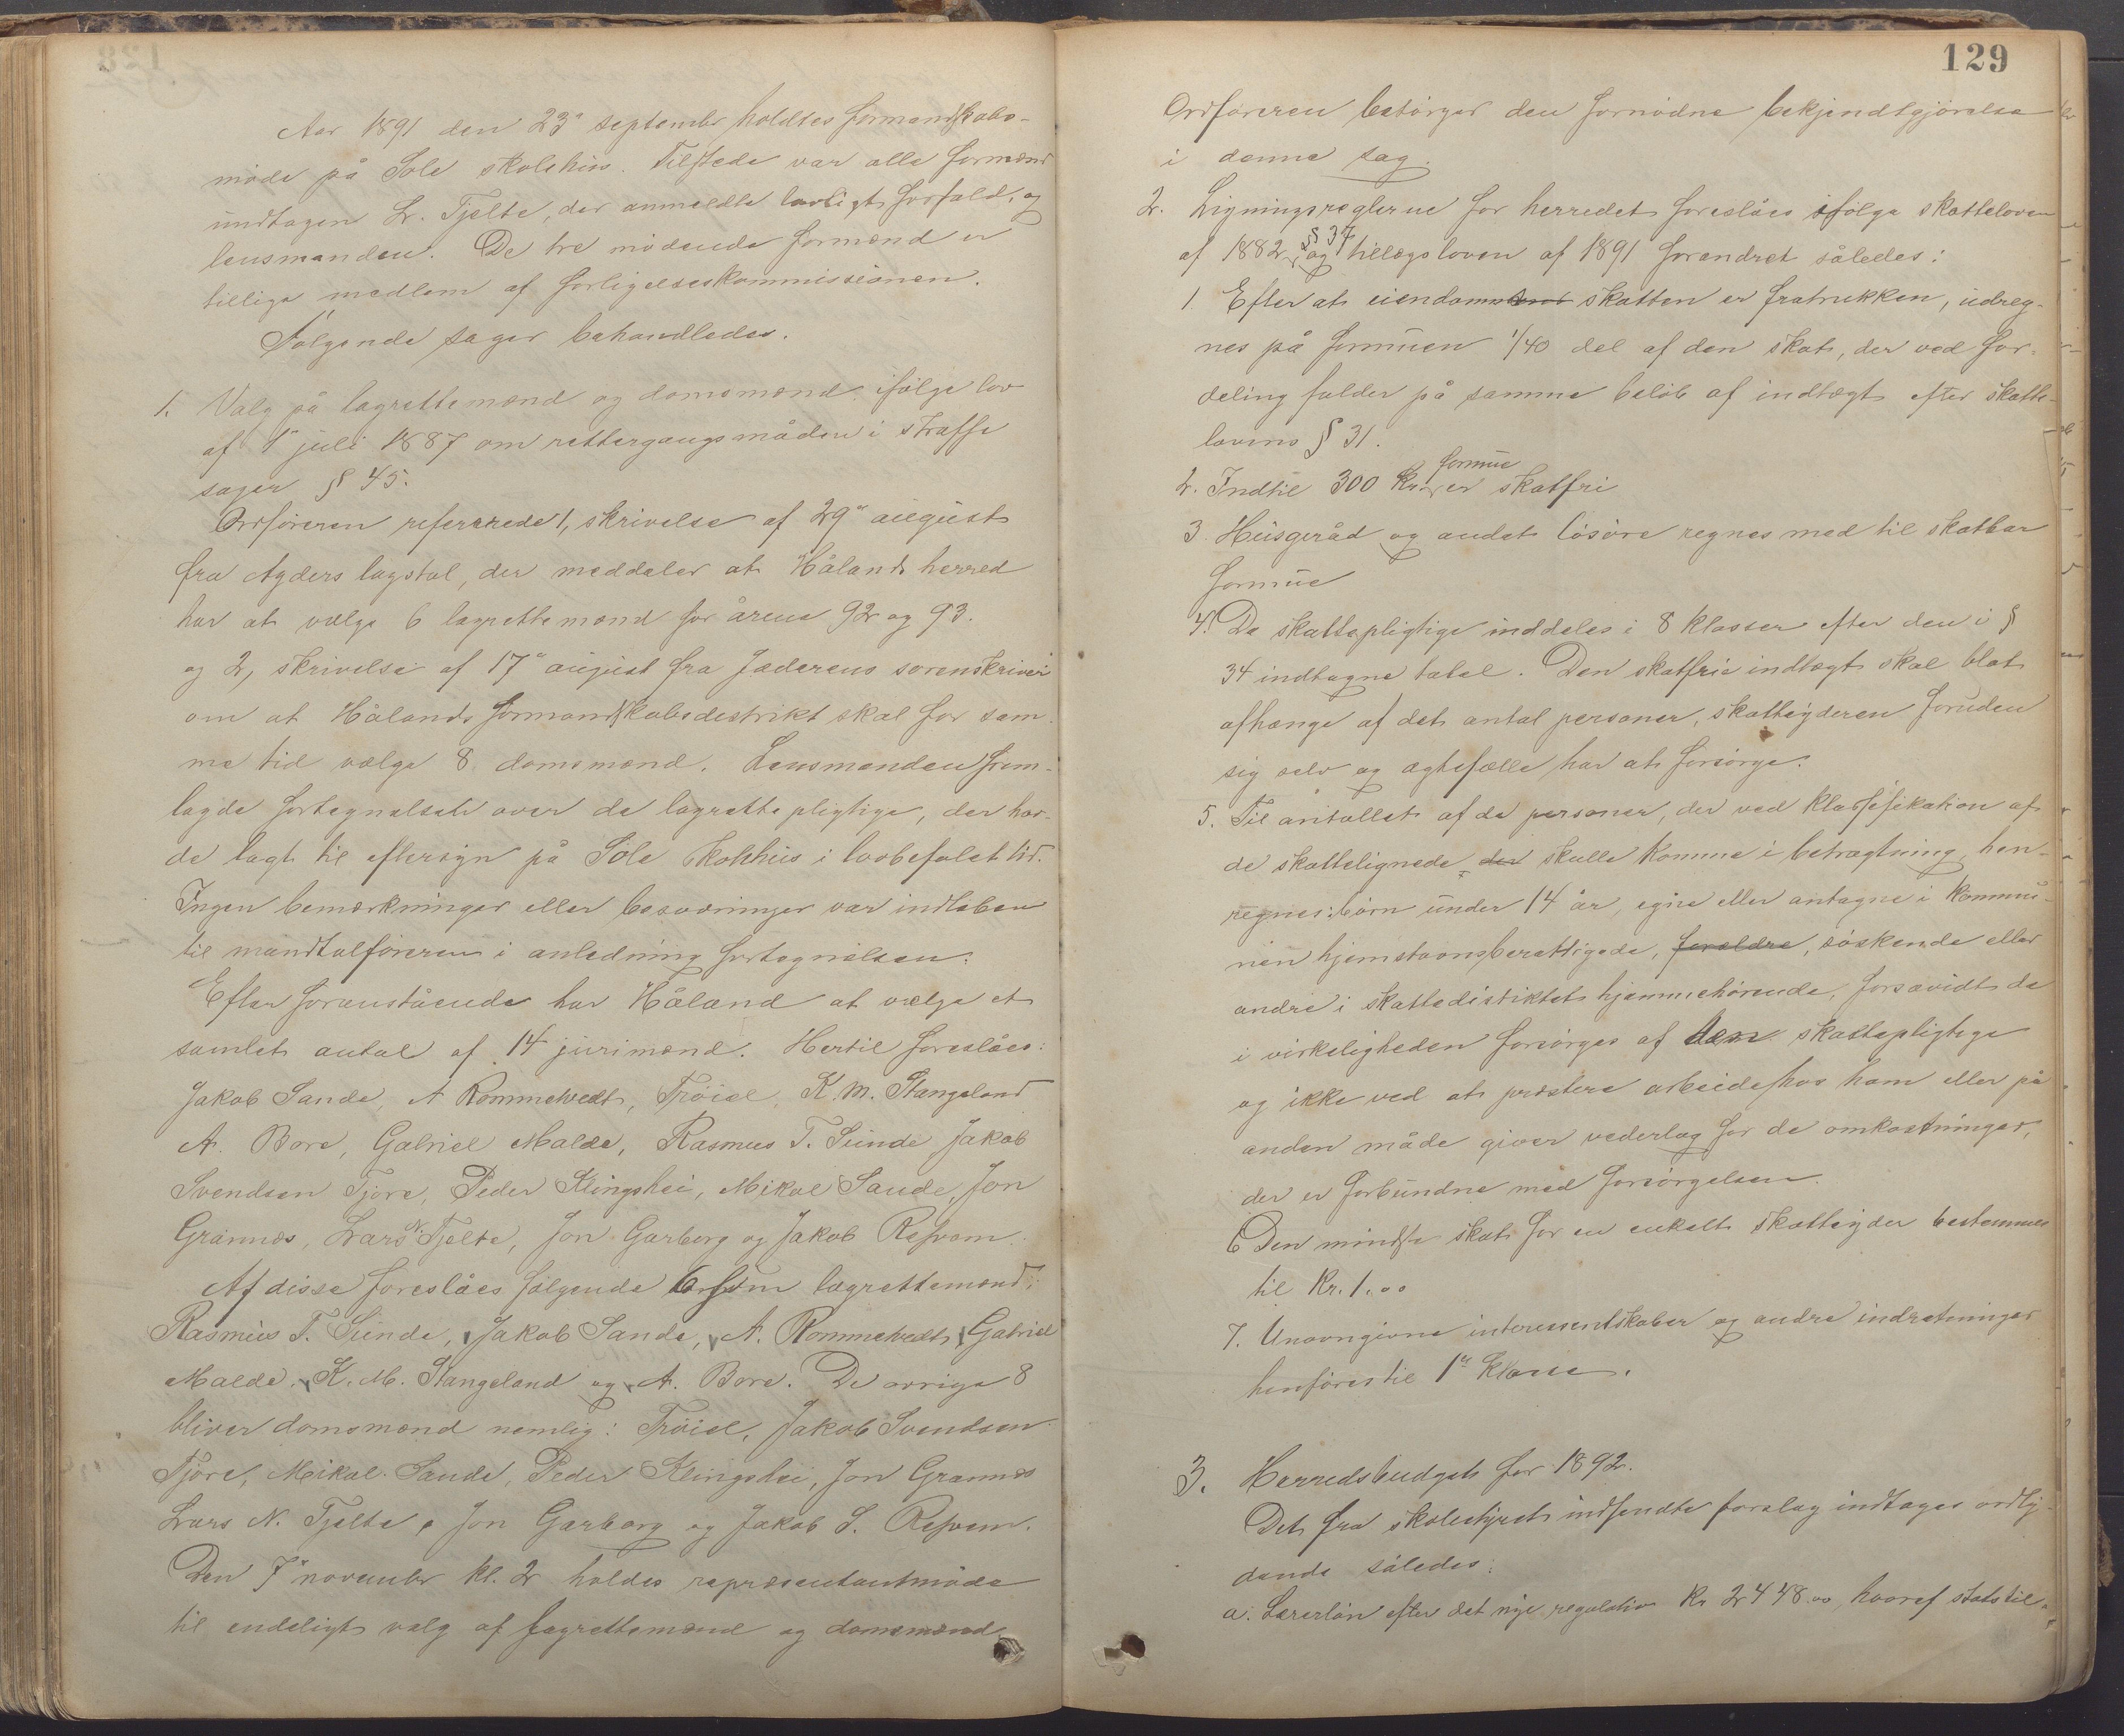 Aar 1891 den 23de september holdtes formandskabs-
møde på Sole skolehus. Tilstede var alle formænd
undtagen L. Tjelta, der anmeldte lovligt forfald, og
lensmanden. De tre mødende formænd er
tillige medlem af forligelseskommissionen.
Følgende sager behandledes.
1. Valg på lagrettemænd og domsmænd ifølge lov
af 1ste juli 1887 om rettergangsmåden i straffe
sager § 45.
Ordføreren refererede 1, skrivelse af 29de august
fra Agders lagstol, der meddeler at Hålands herred
har at vælge 6 lagrettemænd for årene 92 og 93.
og 2, skrivelse af 17de august fra Jæderens sorenskriveri
om at Hålands formandskabsdistrikt skal for sam
me tid vælge 8 domsmænd. Lensmanden frem-
lagde fortegnelsen over de lagrettepligtige, der hav-
de lagt til eftersyn på Sole skolehus i lovbefalet tid.
Ingen bemærkninger eller besværinger var indløben
til mandtalføreren i anledning fortegnelsen.
Efter foranstående har Håland at vælge et
samlet antal af 14 jurimænd. Hertil foreslåes:
Jakob Sande, A Rommetvedt, Trøiel, K. M. Stangeland
A. Bore, Gabriel Malde, Rasmus T. Sunde, Jakob
Svendsen Tjore, Peder Klingshei, Mikal Sande, Jon
Grannæs, Lars N. Tjelta, Jon Garborg og Jakob Refsem.
Af disse foreslåes følgende 6 som lagrettemænd:
Rasmus T. Sunde, Jakob Sande, A. Rommetvedt, Gabriel
Malde, K. M. Stangeland og A. Bore. De øvrige 8
bliver domsmænd nemlig: Trøiel, Jakob Svendsen
Tjore, Mikal Sande, Peder Klingshei, Jon Grannæs
Lars N. Tjelta, Jon Garborg og Jakob S. Refsem.
Den 7de november kl. 2 holdes repræsentantmøde
til endeligt valg af lagrettemænd og domsmænd
129
Ordføreren besørger den fornødne bekjendtgjørelse
i denne sag.
2. Ligningsreglerne for herredet foreslåes ifølge skatteloven
af 1882 § 37 og tillægsloven af 1891 forandret således:
1. Efter at eiendomsskatten er fratrukken, udreg-
nes på formuen 1/40 del af den skat, der ved for-
deling falder på samme beløb af indtægt efter skatte-
lovens § 31.
2. Indtil 300 Kr. formue er skatfri
3. Husgeråd og andet løsøre regnes med til skatbar
formue
4. De skattepligtige inddeles i 8 klasser efter den i §
34 indtagne tabel. Den skatfrie indtægt skal blot
afhænge af det antal personer, skatteyderen foruden
sig selv og ægtefælle har at forsørge.
5. Til antallet af de personer, der ved klassifikation af
de skattelignede der skulle komme i betragtning, hen-
regnes: børn under 14 år, egne eller antagne i kommu-
nen hjemstavnsberettigede, forældre, søskende eller
andre i skattedistriktet hjemmehørende, forsåvidt de
i virkeligheden forsørges af den skattepligtige
og ikke ved at præstere arbeide hos ham eller på
anden måde giver vederlag for de omkostninger,
der er forbundne med forsørgelsen.
6 Den mindste skat for en enkelt skatteyder bestemmes
til Kr. 1.00
7. Unavngivne interessentskaber og andre indretninger
henføres til 1ste Klasse.
3. Herredsbudget for 1892.
Det fra skolestyret indsendte forslag indtages ordly-
dende således:
a. Lærerløn efter det nye regulativ Kr 2448.00, hvoraf statstil-